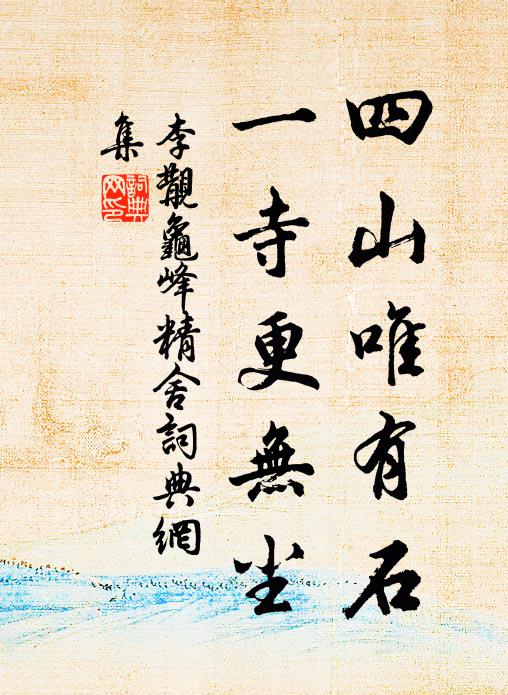 四山唯有石
一寺更無尘
李觀龜峰精舍詞典網
集
詞典
网印